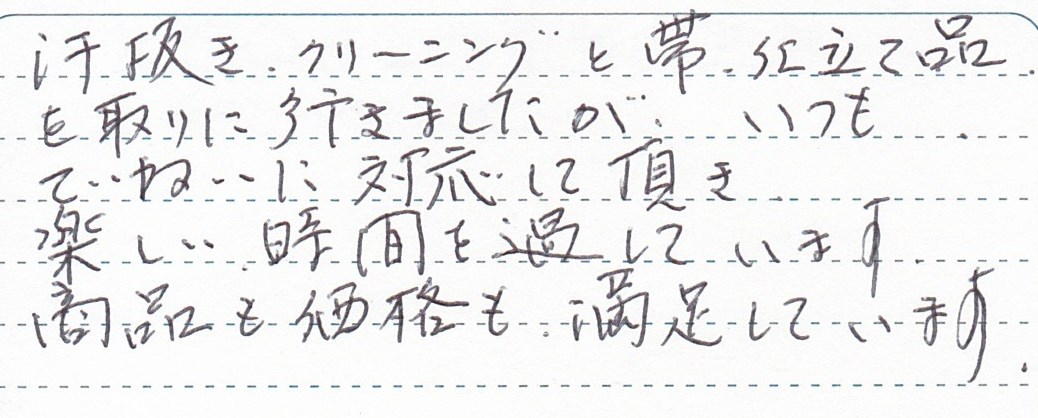 汗抜き、クリーニングと帯、仕立て品
を取りに行きましたが、いつも
ていねいに対応して頂き、
楽しい時間を過しています。
商品も価格も満足しています。